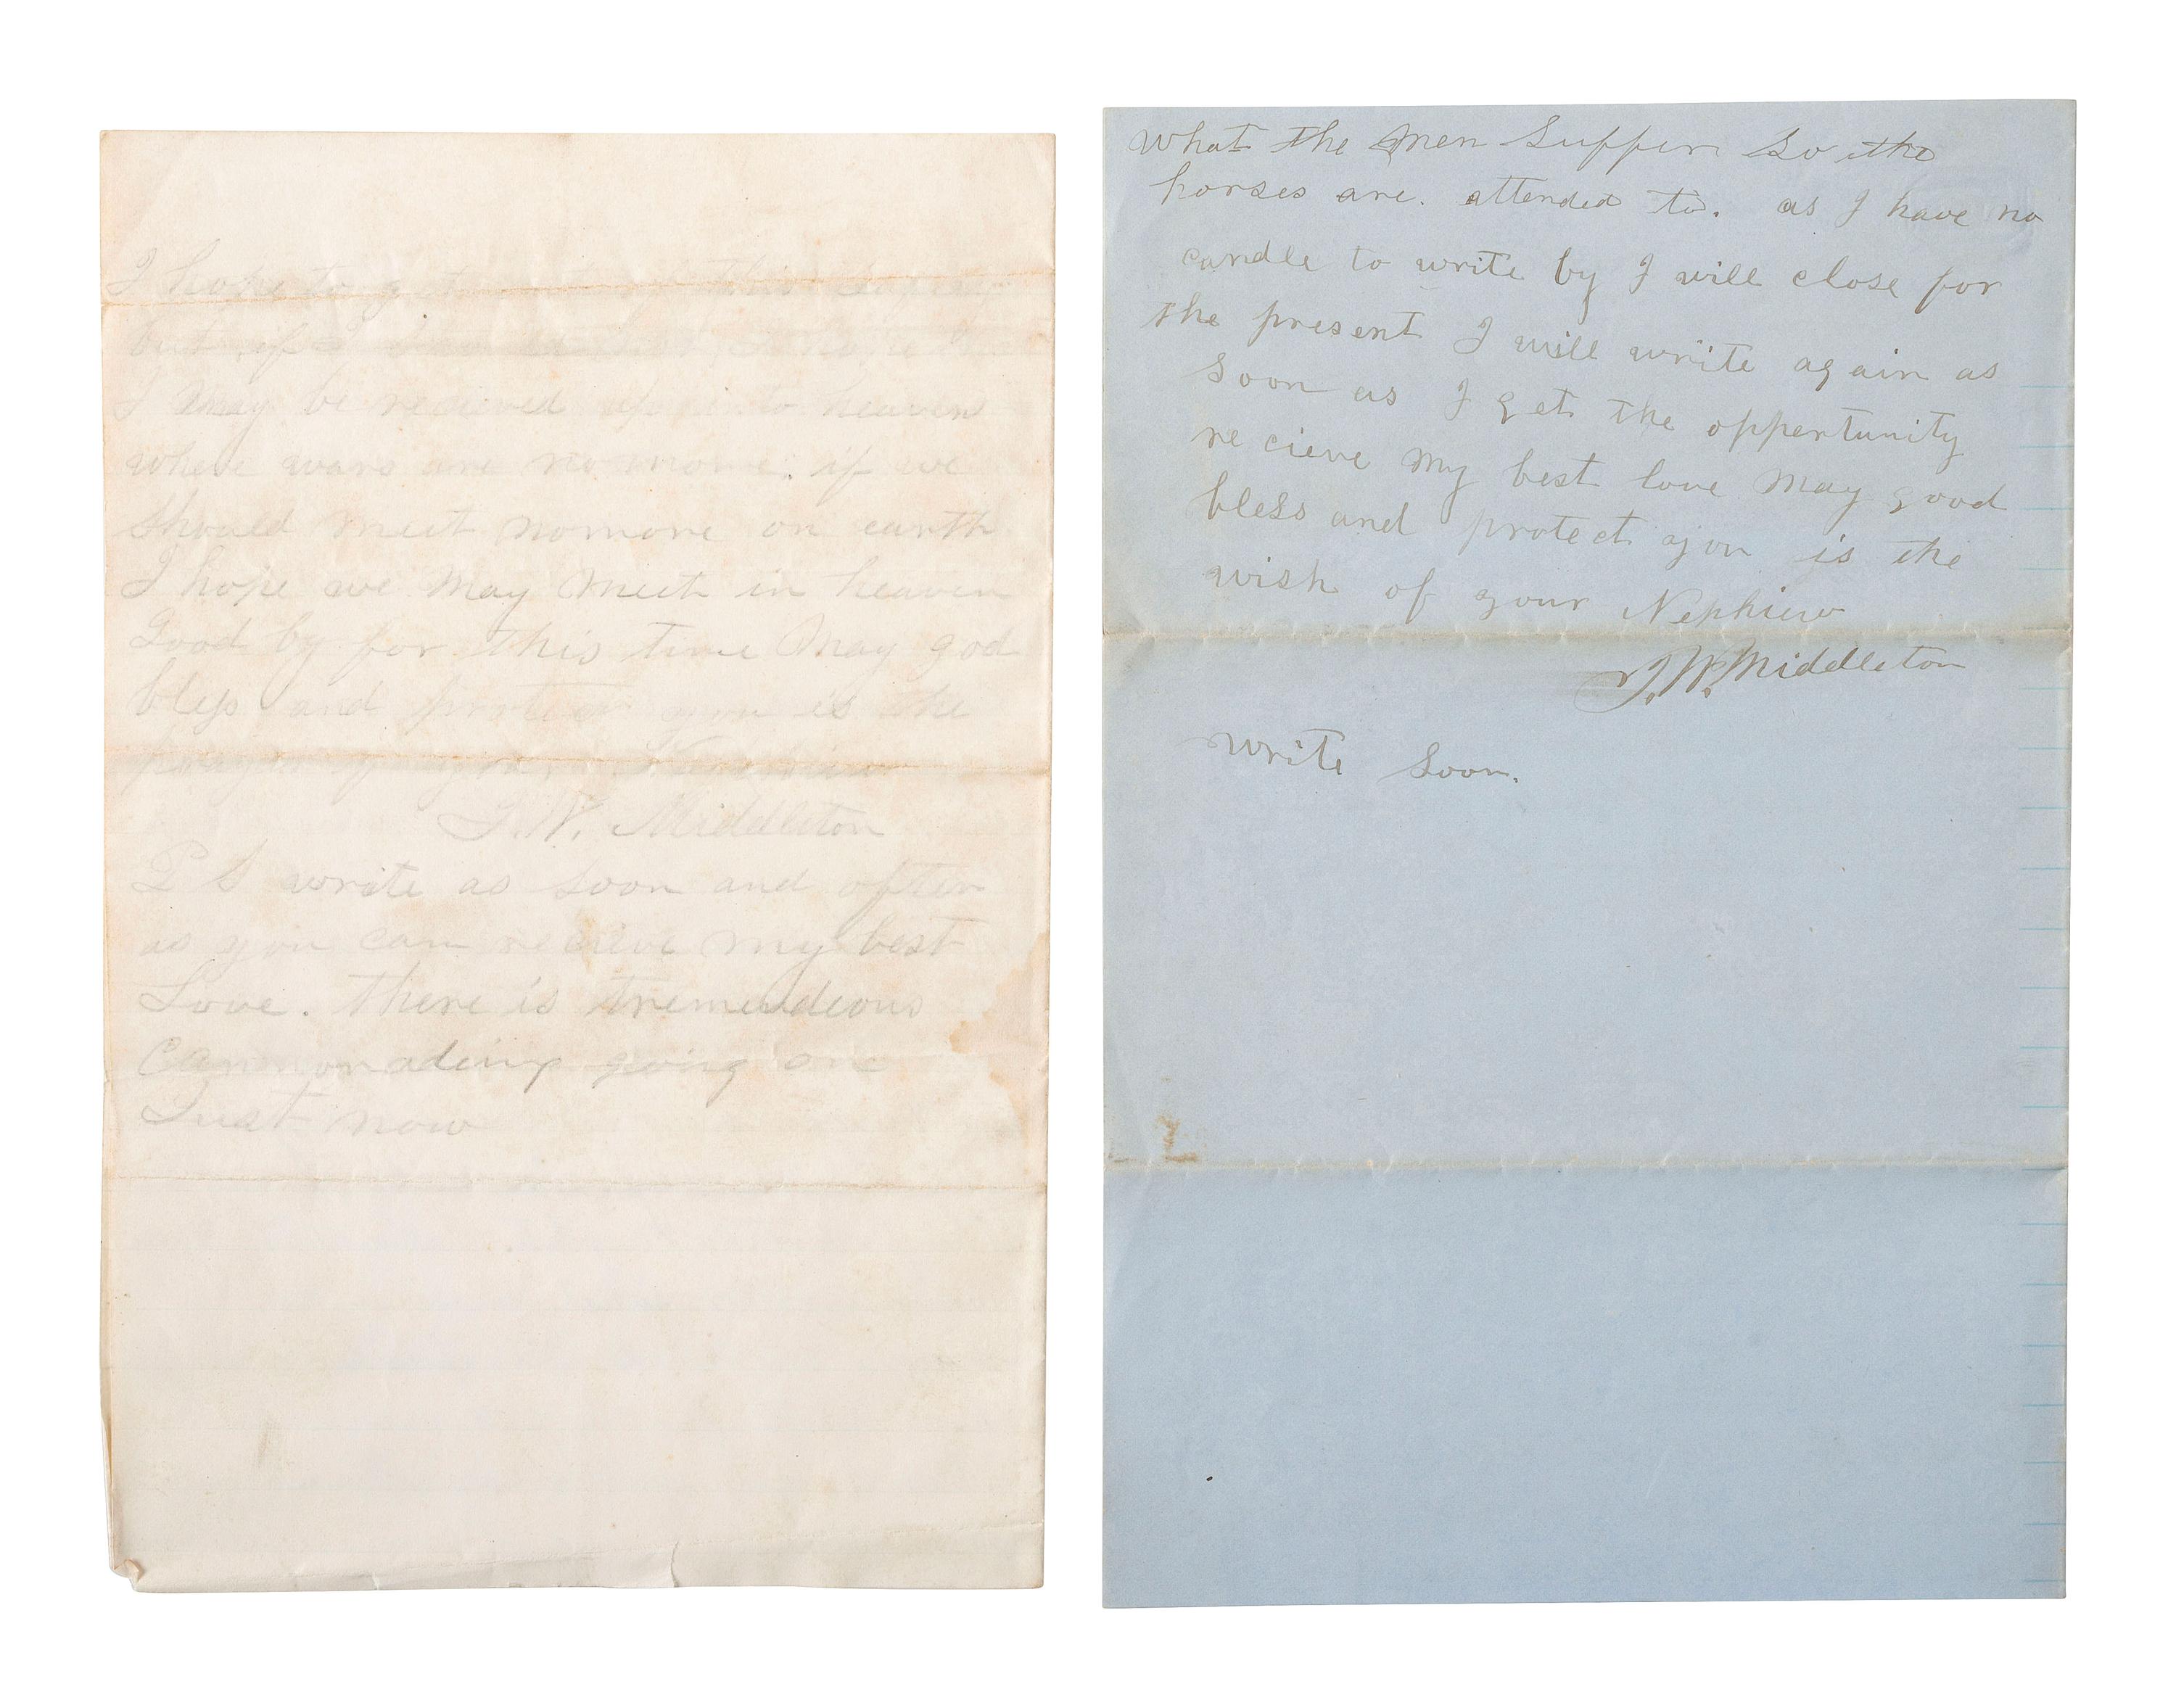 I hope to get out of this
but if I should not I hope
I may be recieved up into heaven
where wars are no more. if we
should meet nomore on earth
I hope we may meet in heaven
Good by for this time May god
bless and protect you is the
prayer of your Nephiew
J. W. Middleton
P S write as soon and often
as you can recieve my best
Love. there is tremendeous
Cannonading going on
Just now
what the men suffer so the
horses are. attended to. as I have no
candle to write by I will close for
the present I will write again as
soon as I get the oppertunity
recieve my best love may good
bless and protect you is the
wish of your Nephiew
J. W. Middleton
write soon.